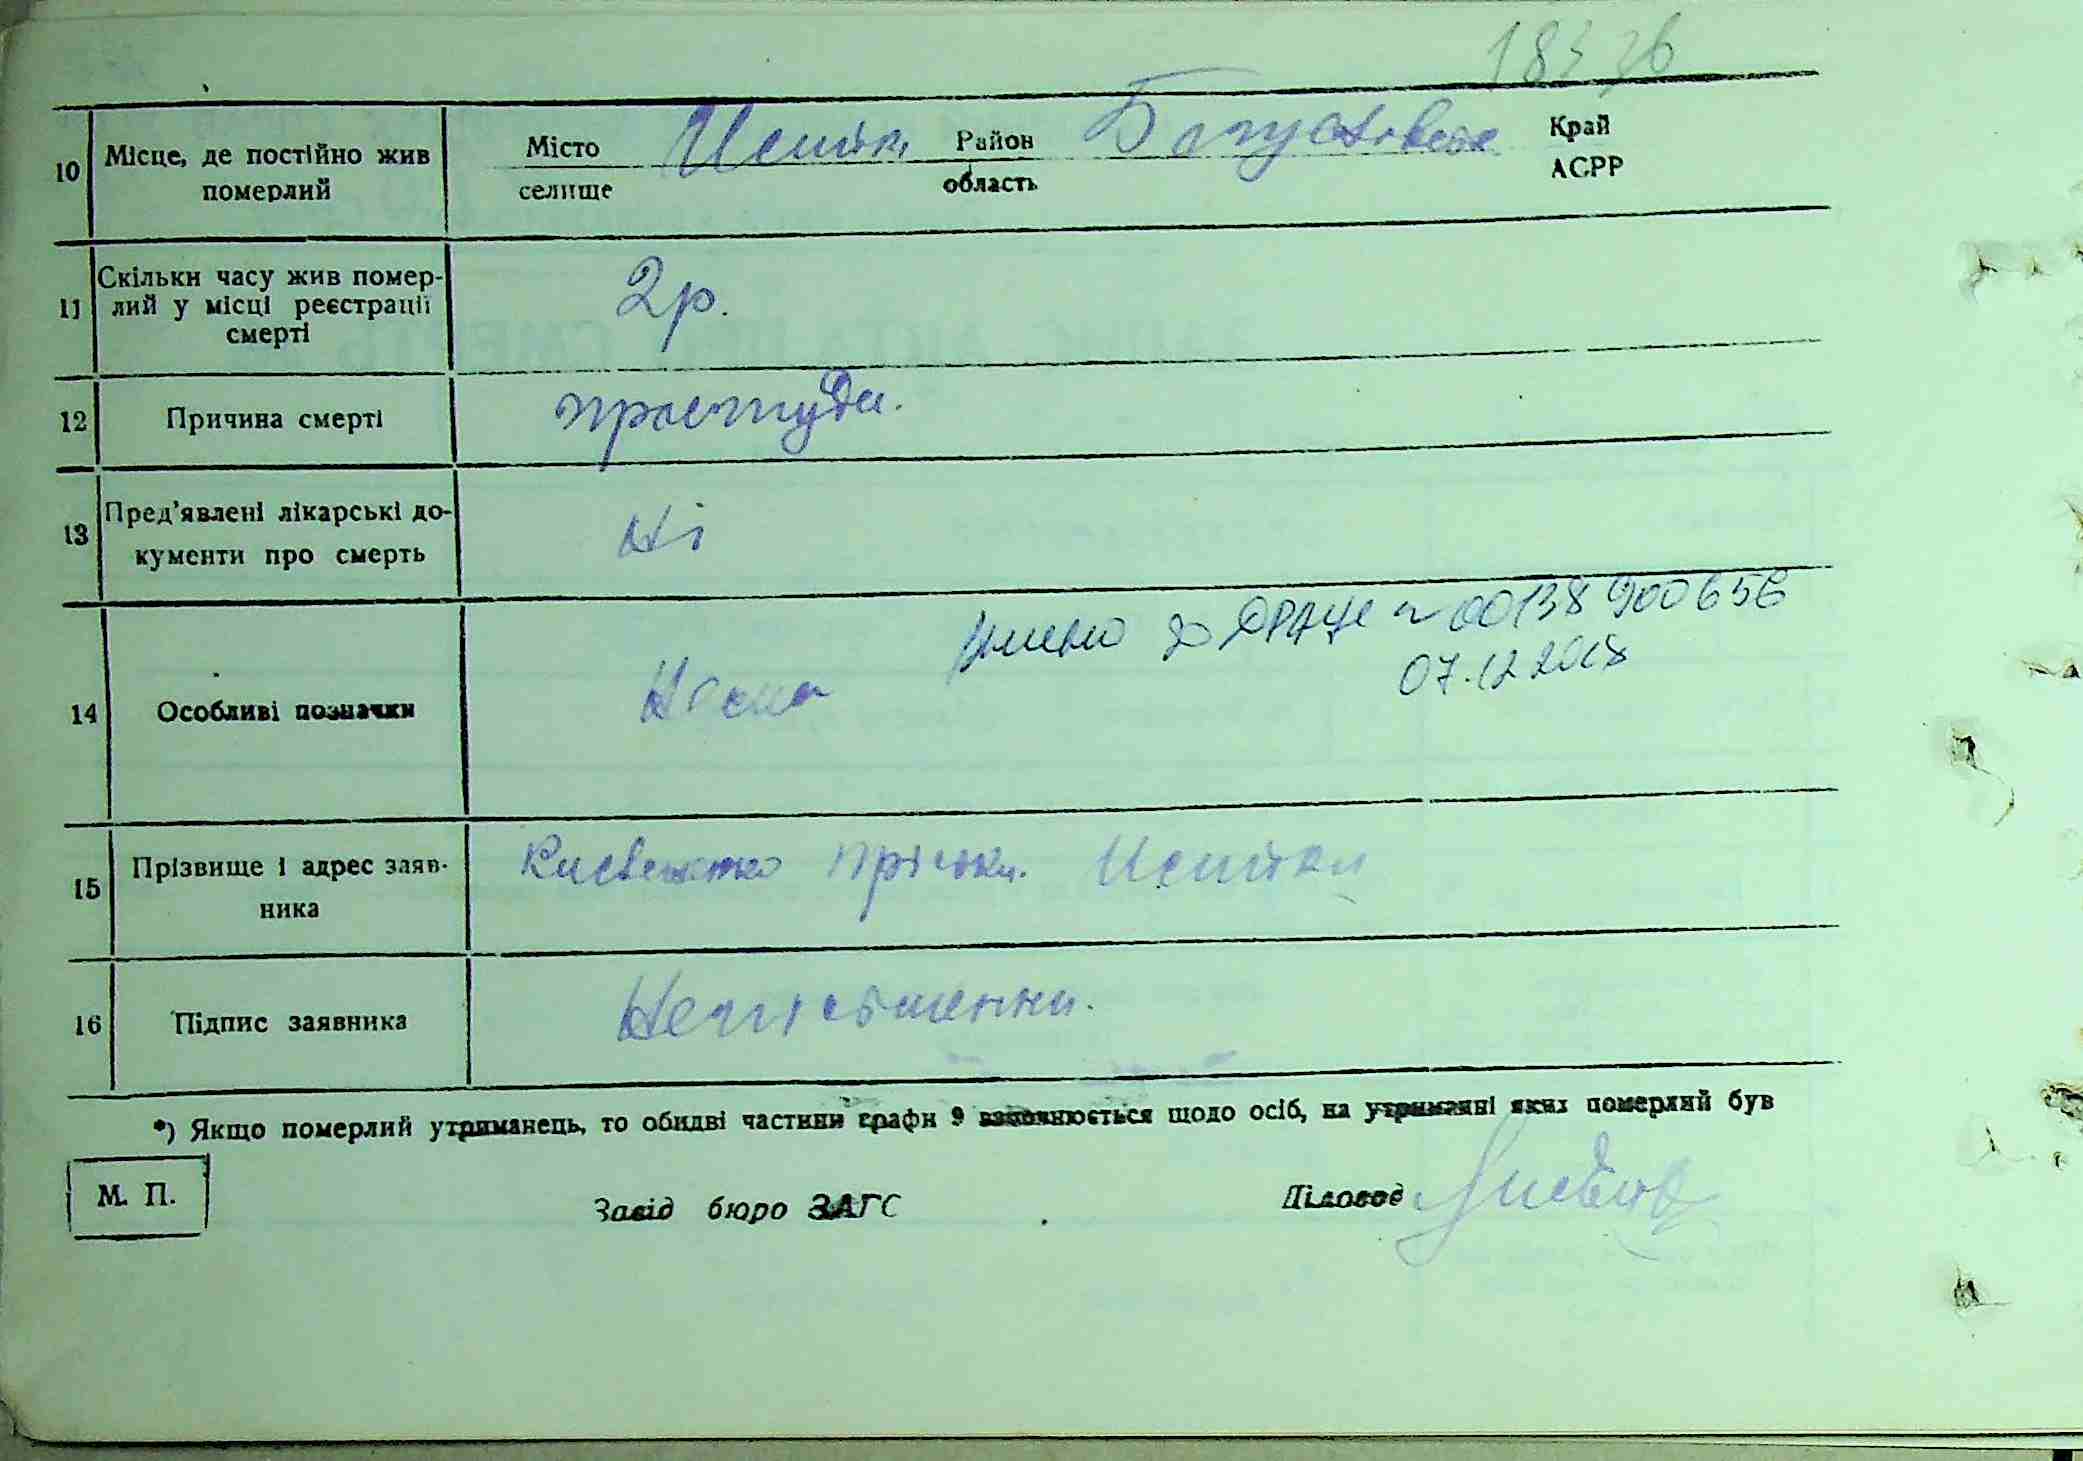 10 Місце, де постійно жив померлий
Місто селище Район область Богуславськ Край АСРР
11 Скільки часу жив помер-
лий у місці реєстрації
смерті
2р.
12 Причина смерті простуда.
13 Пред'явлені лікарські до-
кументи про смерть
Ні
внесено до ДРАЦС 00138900656
07.12.2018
14 Особливі позначки Нема
15 Прізвище і адрес заяв-
ника
16 Підпис заявника
*) Якщо померлий утриманець, то обидві частини графи 9 заповнюється щодо осіб, на утриманні яких померлий був
М. П.
Завід бюро ЗАГС Діловод